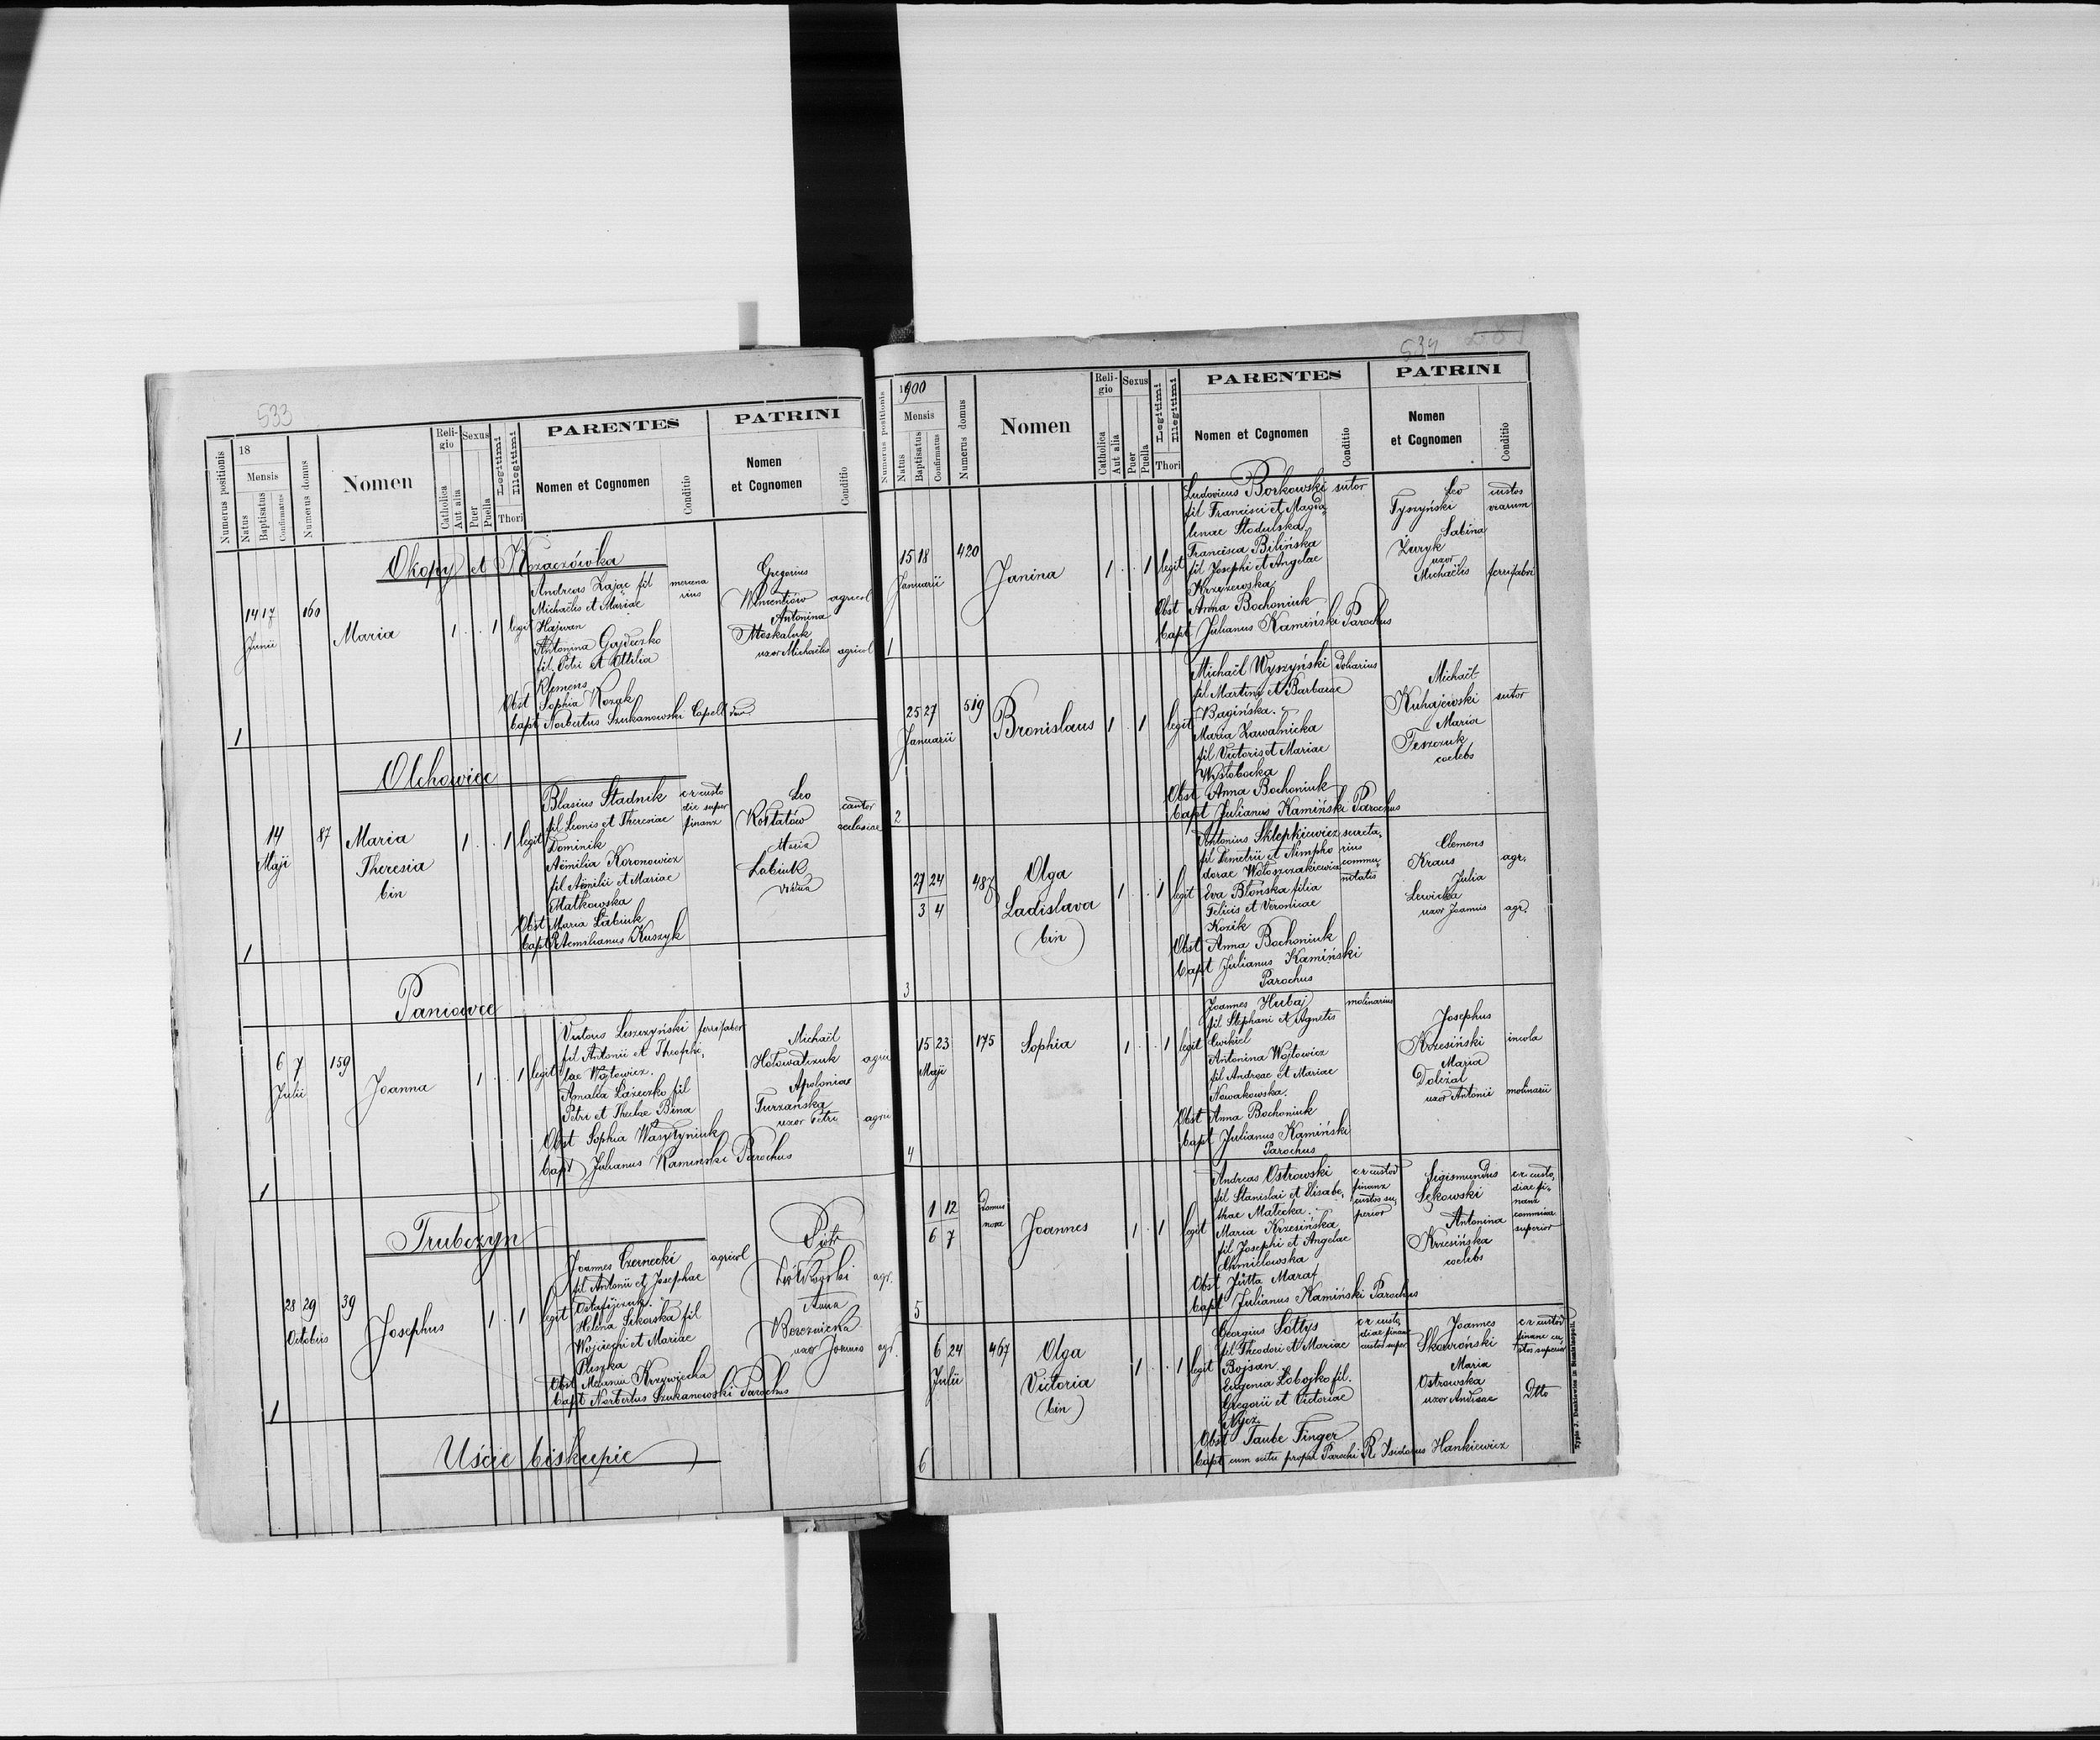 533
Numerus positionis
18
Mensis
Natus
Baptisatus
Confirmatus
Numerus domus
Nomen
Reli-
gio
Catholica
Aut alia
Sexus
Puer
Puella
Legitimi
Illegitimi
Thori
PARENTES
Nomen et Cognomen
Conditio
PATRINI
Nomen
et Cognomen
Conditio
Okopy et Kozaczówka
14 17
Junii
160
Maria
1 . . 1 legit
Andreas Zając fil
Michaëlis et Mariae
Hajwan
Antonina Gajdeczko
fil. Petri et Ottilia
Klemens
Obst Sophia Kozak
bapt Norbertus Szukanowski Capell
mercena
rius
Gregorius
Antonina
Moskaluk
uxor Michaëlis
agricol
agricol
1
Olchowiec
14
Maji
87
Maria
Theresia
bin
1 . . 1 legit
Blasius Stadnik
fil Leonis et Theresiae
Dominik
Aëmilia Koronowicz
fil Aëmilii et Mariae
Matkowska
Obst Maria Łabiuk
bapt Kuszyk
c. r. custo
die super
finanz
Leo
Kostatów
Maria
Łabiuk
vidua
cantor
eclesiae
1
Paniowce
6 7
Julii
159
Joanna
1 . . 1 legit
Victorus Leszczyński
fil Antonii et Theophi,
lae Wojtowicz.
Amalia Łazeczko fil
Petri et Theclae Bina
Obst Sophia Wasylyniuk
bapt Julianus Kaminski Parochus
ferrifaber
Michaël
Hołowatczuk
Apolonia
Turzańska
uxor Petri
agri
agri
1
Trubczyn
28 29
Octobris
39
Josephus
1 . 1 legit
Joannes Czernecki
fil Antonii et Josephae
Ostafijczuk.
Helena Sikorska fil
Wojciechi et Mariae
Pleszka
Obst Melania Krzywiecka
bapt Norbertus Szukanowski Parochus
agricol
Piotr
Anna
uxor Joannis
agr.
agr.
1
Uście biskupie
534
Numerus positionis
1900
Mensis
Natus
Baptisatus
Confirmatus
Numerus domus
Nomen
Reli-
gio
Catholica
Aut alia
Sexus
Puer
Puella
Legitimi
Illegitimi
Thori
PARENTES
Nomen et Cognomen
Conditio
PATRINI
Nomen
et Cognomen
Conditio
15 18
Januarii
420
Janina
1 . . 1 legit
Ludovicus Borkowski
fil Francisci et Magda
lenae Stodulska
Francisca Bilińska
fil Josephi et Angelae
Krzyżewska
Obst Anna Bochoniuk
bapt Julianus Kamiński Parochus
sutor
Leo
Tyszyński
Sabina
Żuryk
uxor
Michaëlis
custos
viarum
ferrifabri
1
25 27
Januarii
519
Bronislaus
1 . 1 legit
Michaël Wyszyński
fil Martini et Barbarae
Bagińska.
Maria Zawalnicka
fil Victoris et Mariae
Wysłobocka
Obst Anna Bochoniuk
bapt Julianus Kamiński Parochus
doliarius
Michaël
Kuhajewski
Maria
Teszczuk
coelebs
sutor
2
27 24
3 4
487
Olga
Ladislava
(bin)
1 . . 1 legit
Antonius Sklepkiewicz
fil Demetrii et Nimpho
dorae Wołoszczakiewicz
Eva Błońska filia
Felicis et Veronicae
Kozik
Obst Anna Bochoniuk
bapt Julianus Kamiński
Parochus
secreta,
rius
commu,
nitatis
Clemens
Kraus
Julia
Lewicka
uxor Joannis
agr.
agr.
3
15 23
Maji
175
Sophia
1 . . 1 legit
Joannes Hubaj
fil Stephani et Agnetis
Cwikiel
Antonina Wojtowicz
fil Andreae et Mariae
Nowakowska.
Obst Anna Bochoniuk
bapt Julianus Kamiński
Parochus
molinarius
Josephus
Krzesiński
Maria
Doležal
uxor Antonii
incola
molinarii
4
1 12
6 7
Domus
nova
Joannes
1 . 1 legit
Andreas Ostrowski
fil Stanislai et Elisabe,
thae Małecka.
Maria Krzesińska
fil Josephi et Angelae
Chmielowska
Obst Jütta Maraf
bapt Julianus Kamiński Parochus
c. r custod
finanz
custos su,
perior
Sigismundus
Sękowski
Antonina
Krzesińska
coelebs
c. r custo,
diae fi-
nanz
commissa
superior
5
6 24
Julii
467
Olga
Victoria
(bin)
1 . . 1 legit
Georgius Sołtys
fil Theodori et Mariae
Bojsan.
Eugenia Łobojko fil.
Gregorii et Victoriae
Nycz.
Obst Taube Finger
bapt cum scitu propr Parochi R. Isidorus Hankiewicz
c. r. custo
diae finanz
custos super
Joannes
Skowroński
Maria
Ostrowska
uxor Andreae
c. r custod
finanz cu,
stos superior
Dtto
6
Typis J. Dankiewicz in Stanislaopoli.